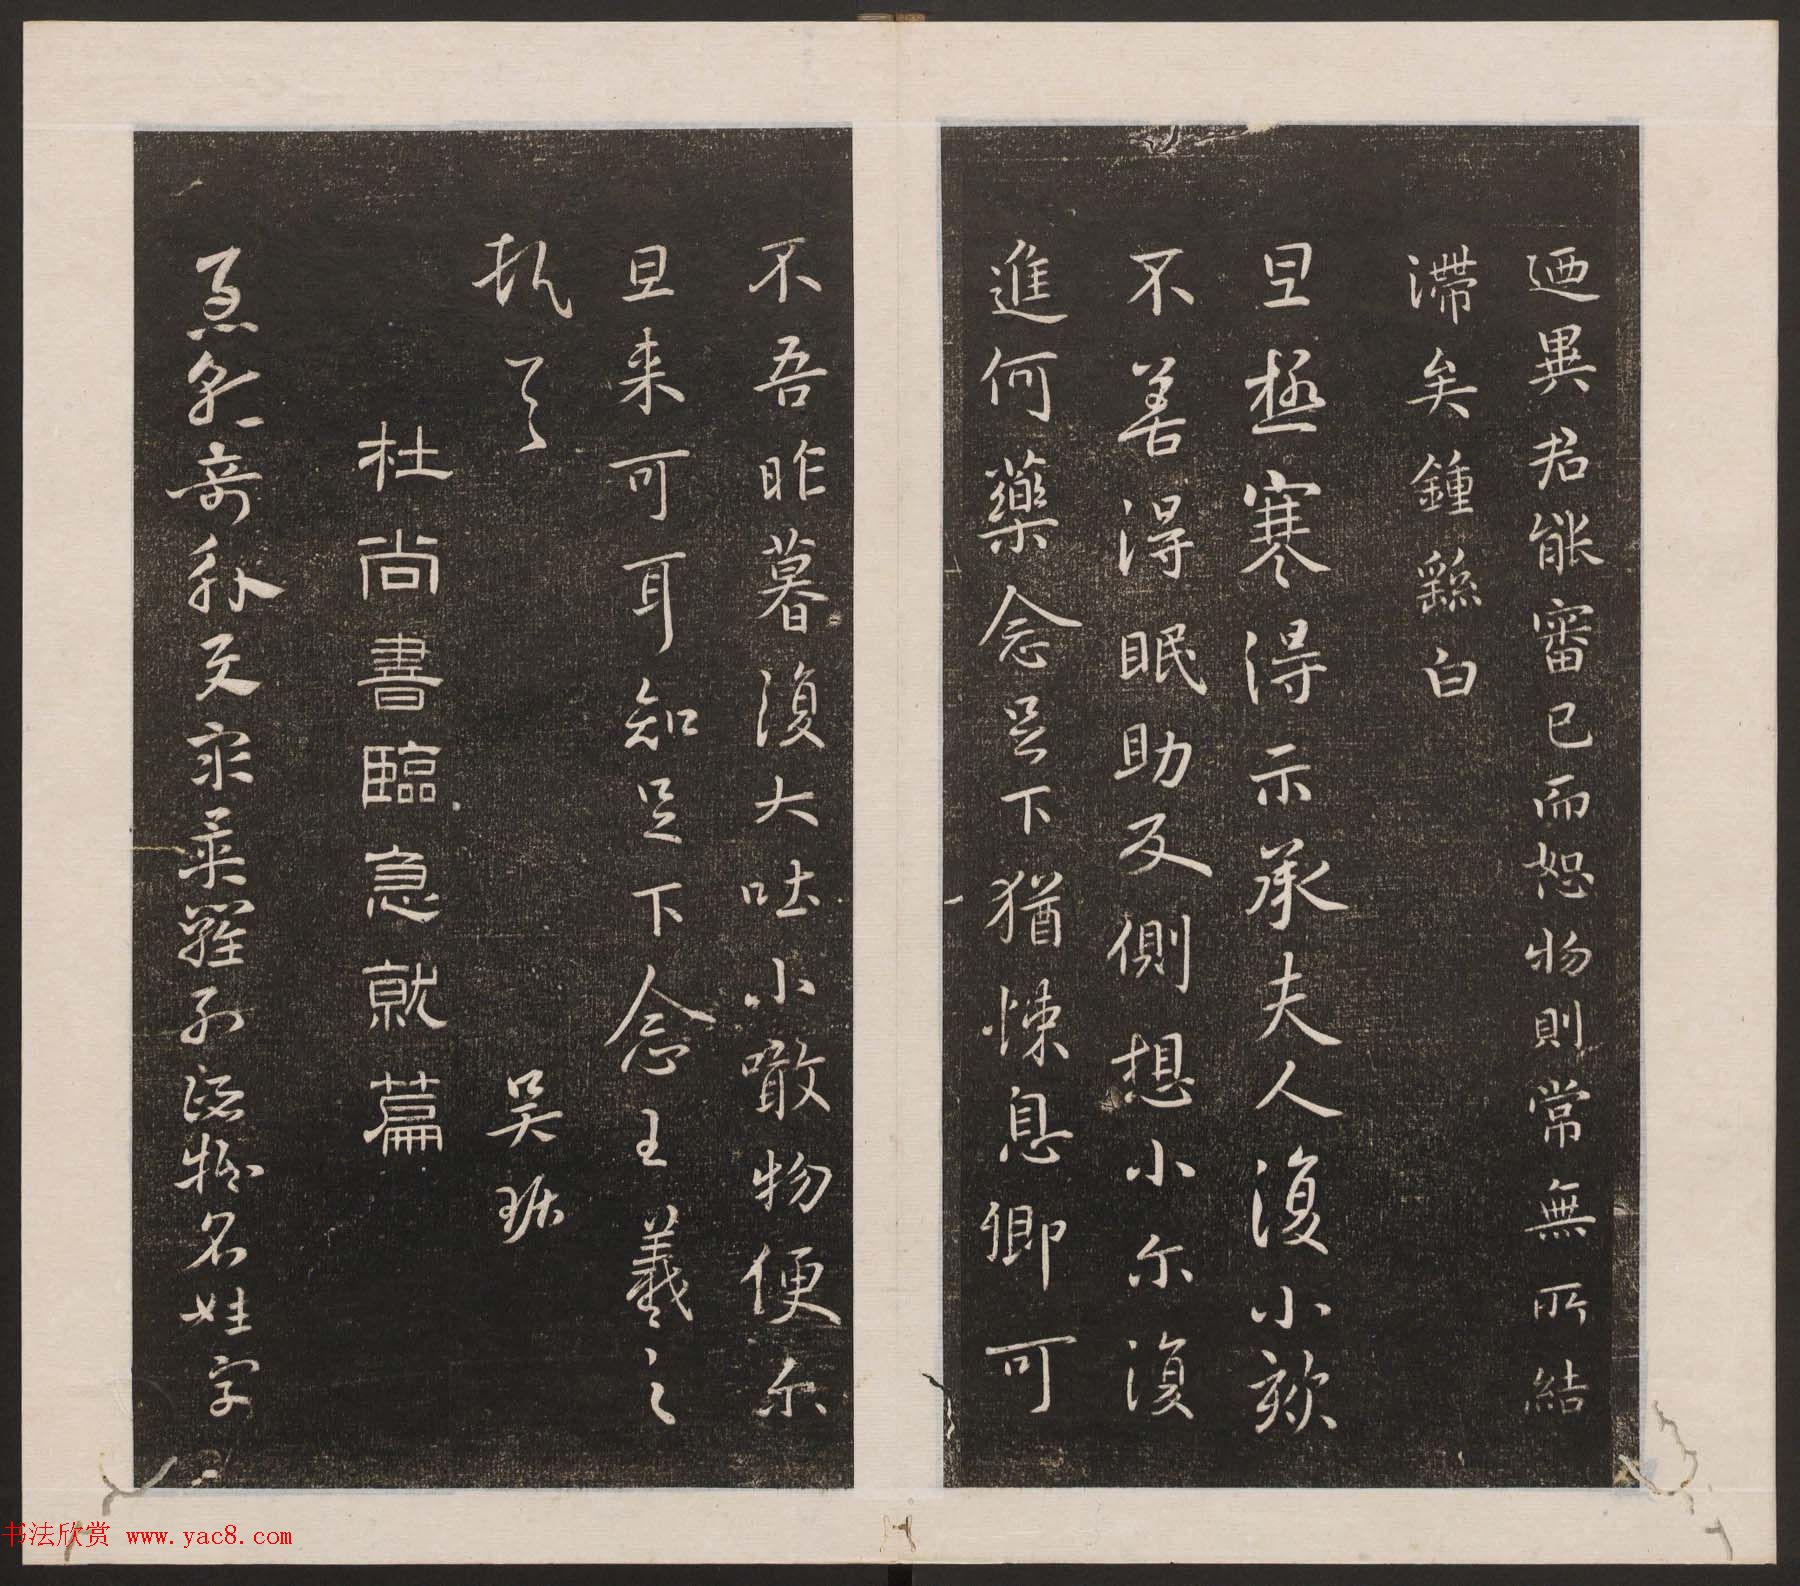 迺異君能審己而恕物則常無所結
滯矣鍾繇白
旦極寒得示承夫人復小欬
不善得眠助反側想小尔復
進何藥念足下猶悚息卿可
不吾昨暮復大吐小噉物便尔
旦来可耳知足下念王羲之
頓首
吴琚
杜尚書臨急就篇
急就奇觚與衆異羅列諸物名姓字
书法欣赏 www.yac8.com